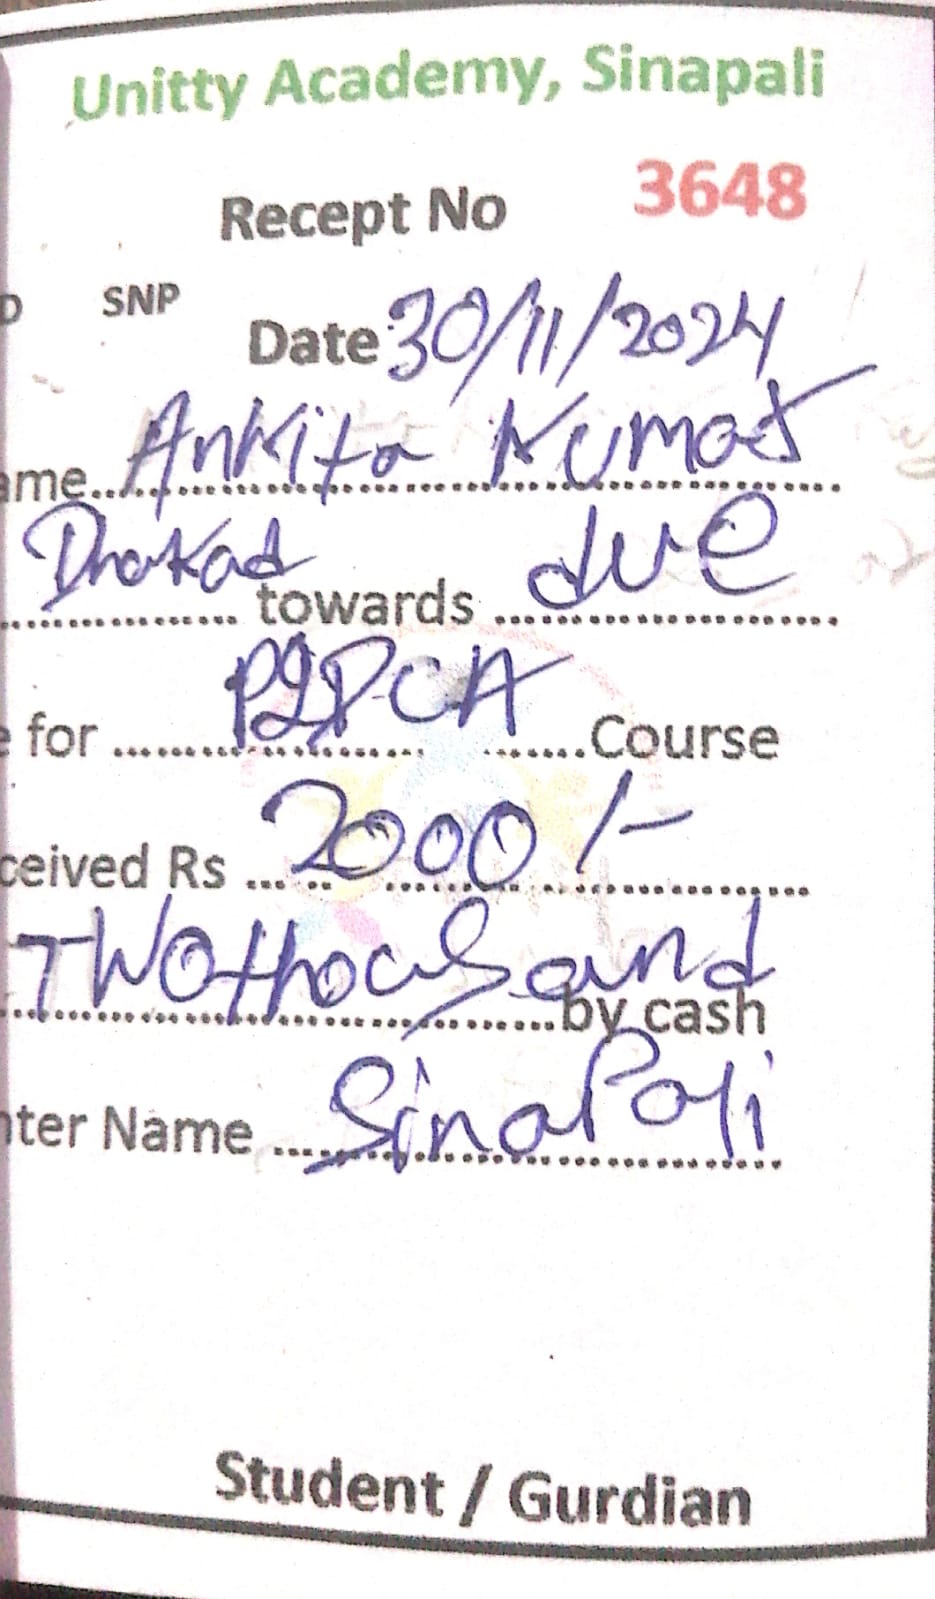 Unitty Academy, Sinapali
Recept No 3648
D SNP
Date 30/11/2024
ame Ankita Kumar
Dhakad towards due
e for ...... Course
ceived Rs 2000/-
Two thousand by cash
nter Name Sinapali
Student / Gurdian